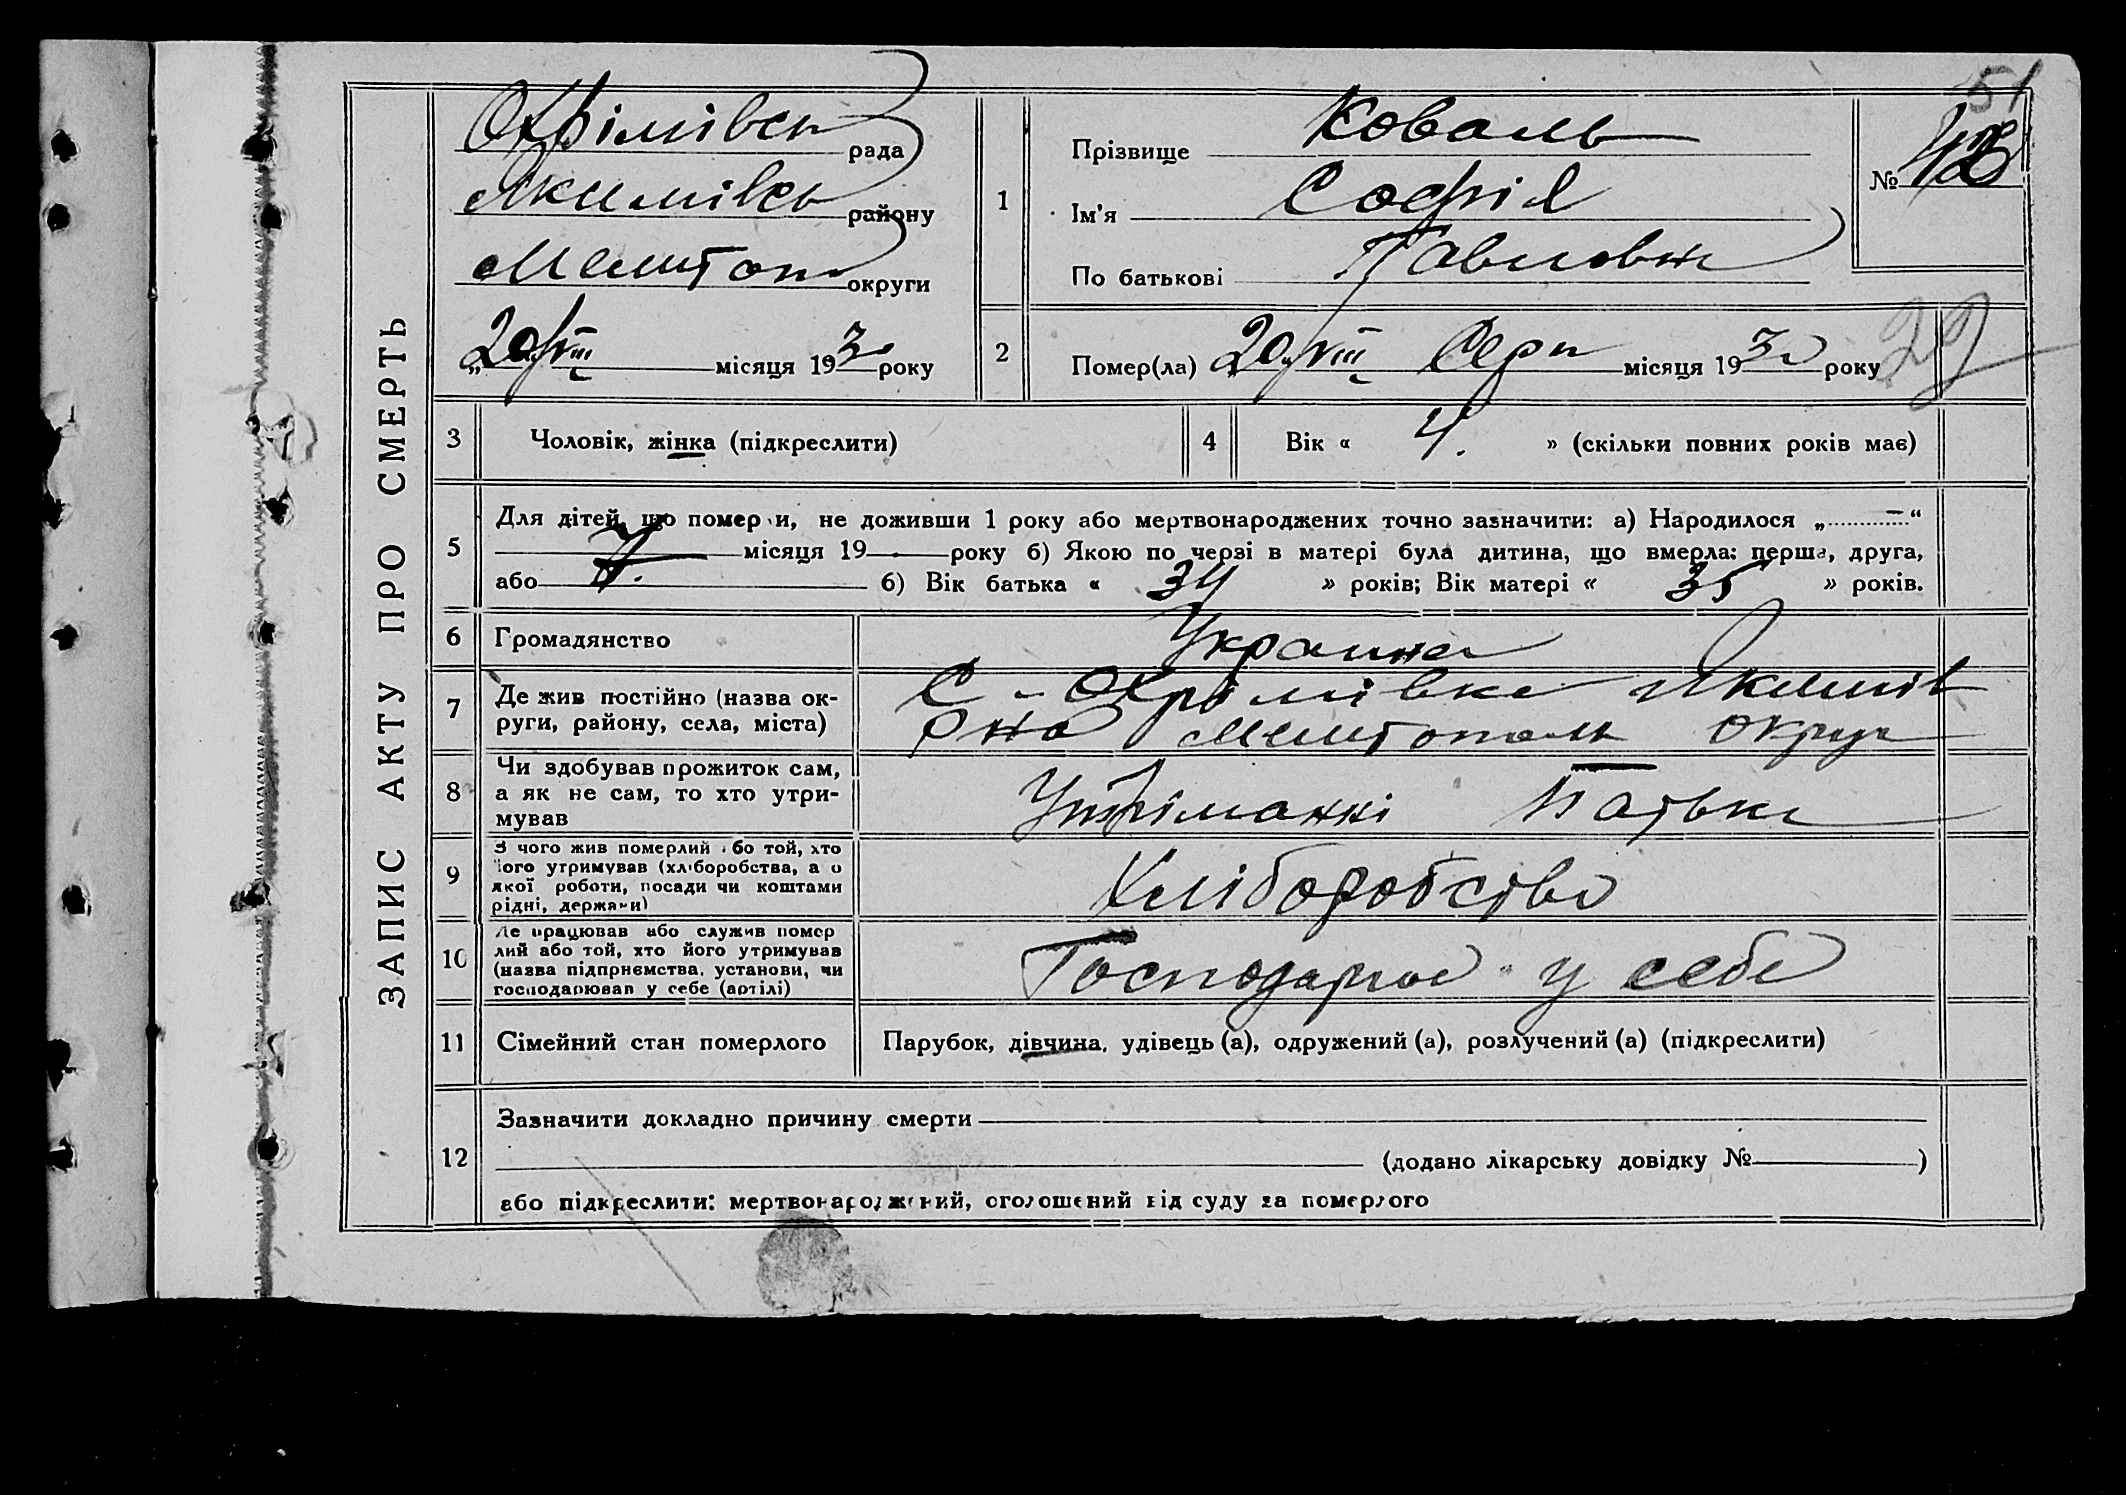 51
ЗАПИС АКТУ ПРО СМЕРТЬ
Охрімівськ рада
Якимівсь району
Мелитоп округи
„20/VIII місяця 1930 року
1
Прізвище Коваль
Ім'я Софія
По батькові Павловн
№ 48
2
Помер(ла) „20/VIII Серп місяця 1930 року
29
3 Чоловік, жінка (підкреслити)
4 Вік « 4. » (скільки повних років має)
5
Для дітей, що померли, не доживши 1 року або мертвонароджених точно зазначити: а) Народилося „ — “
місяця 19 року б) Якою по черзі в матері була дитина, що вмерла: перша, друга,
або б) Вік батька « 34 » років; Вік матері « 35 » років.
6 Громадянство Украина
7
Де жив постійно (назва ок-
руги, району, села, міста)
С - Охрімівка Якимів
р на Мелитополь округи
8
Чи здобував прожиток сам,
а як не сам, то хто утри-
мував
Утріманні Батька
9
З чого жив померлий або той, хто
його утримував (хліборобства, а о
якої роботи, посади чи коштами
рідні, держави)
Хліборобство
10
Де працював або служив помер
лий або той, хто його утримував
(назва підприємства, установи, чи
господарював у себе (артілі)
Господарює у себе
11 Сімейний стан померлого Парубок, дівчина, удівець (а), одружений (а), розлучений (а) (підкреслити)
12
Зазначити докладно причину смерти
(додано лікарську довідку № )
або підкреслити: мертвонароджений, оголошений від суду за померлого